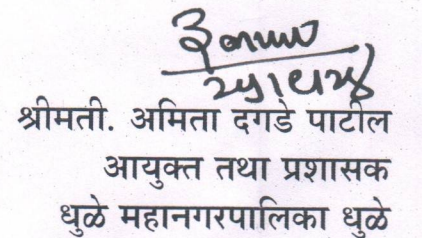 श्रीमती. अमिता दगडे पाटील
आयुक्त तथा प्रशासक
धुळे महानगरपालिका धुळे